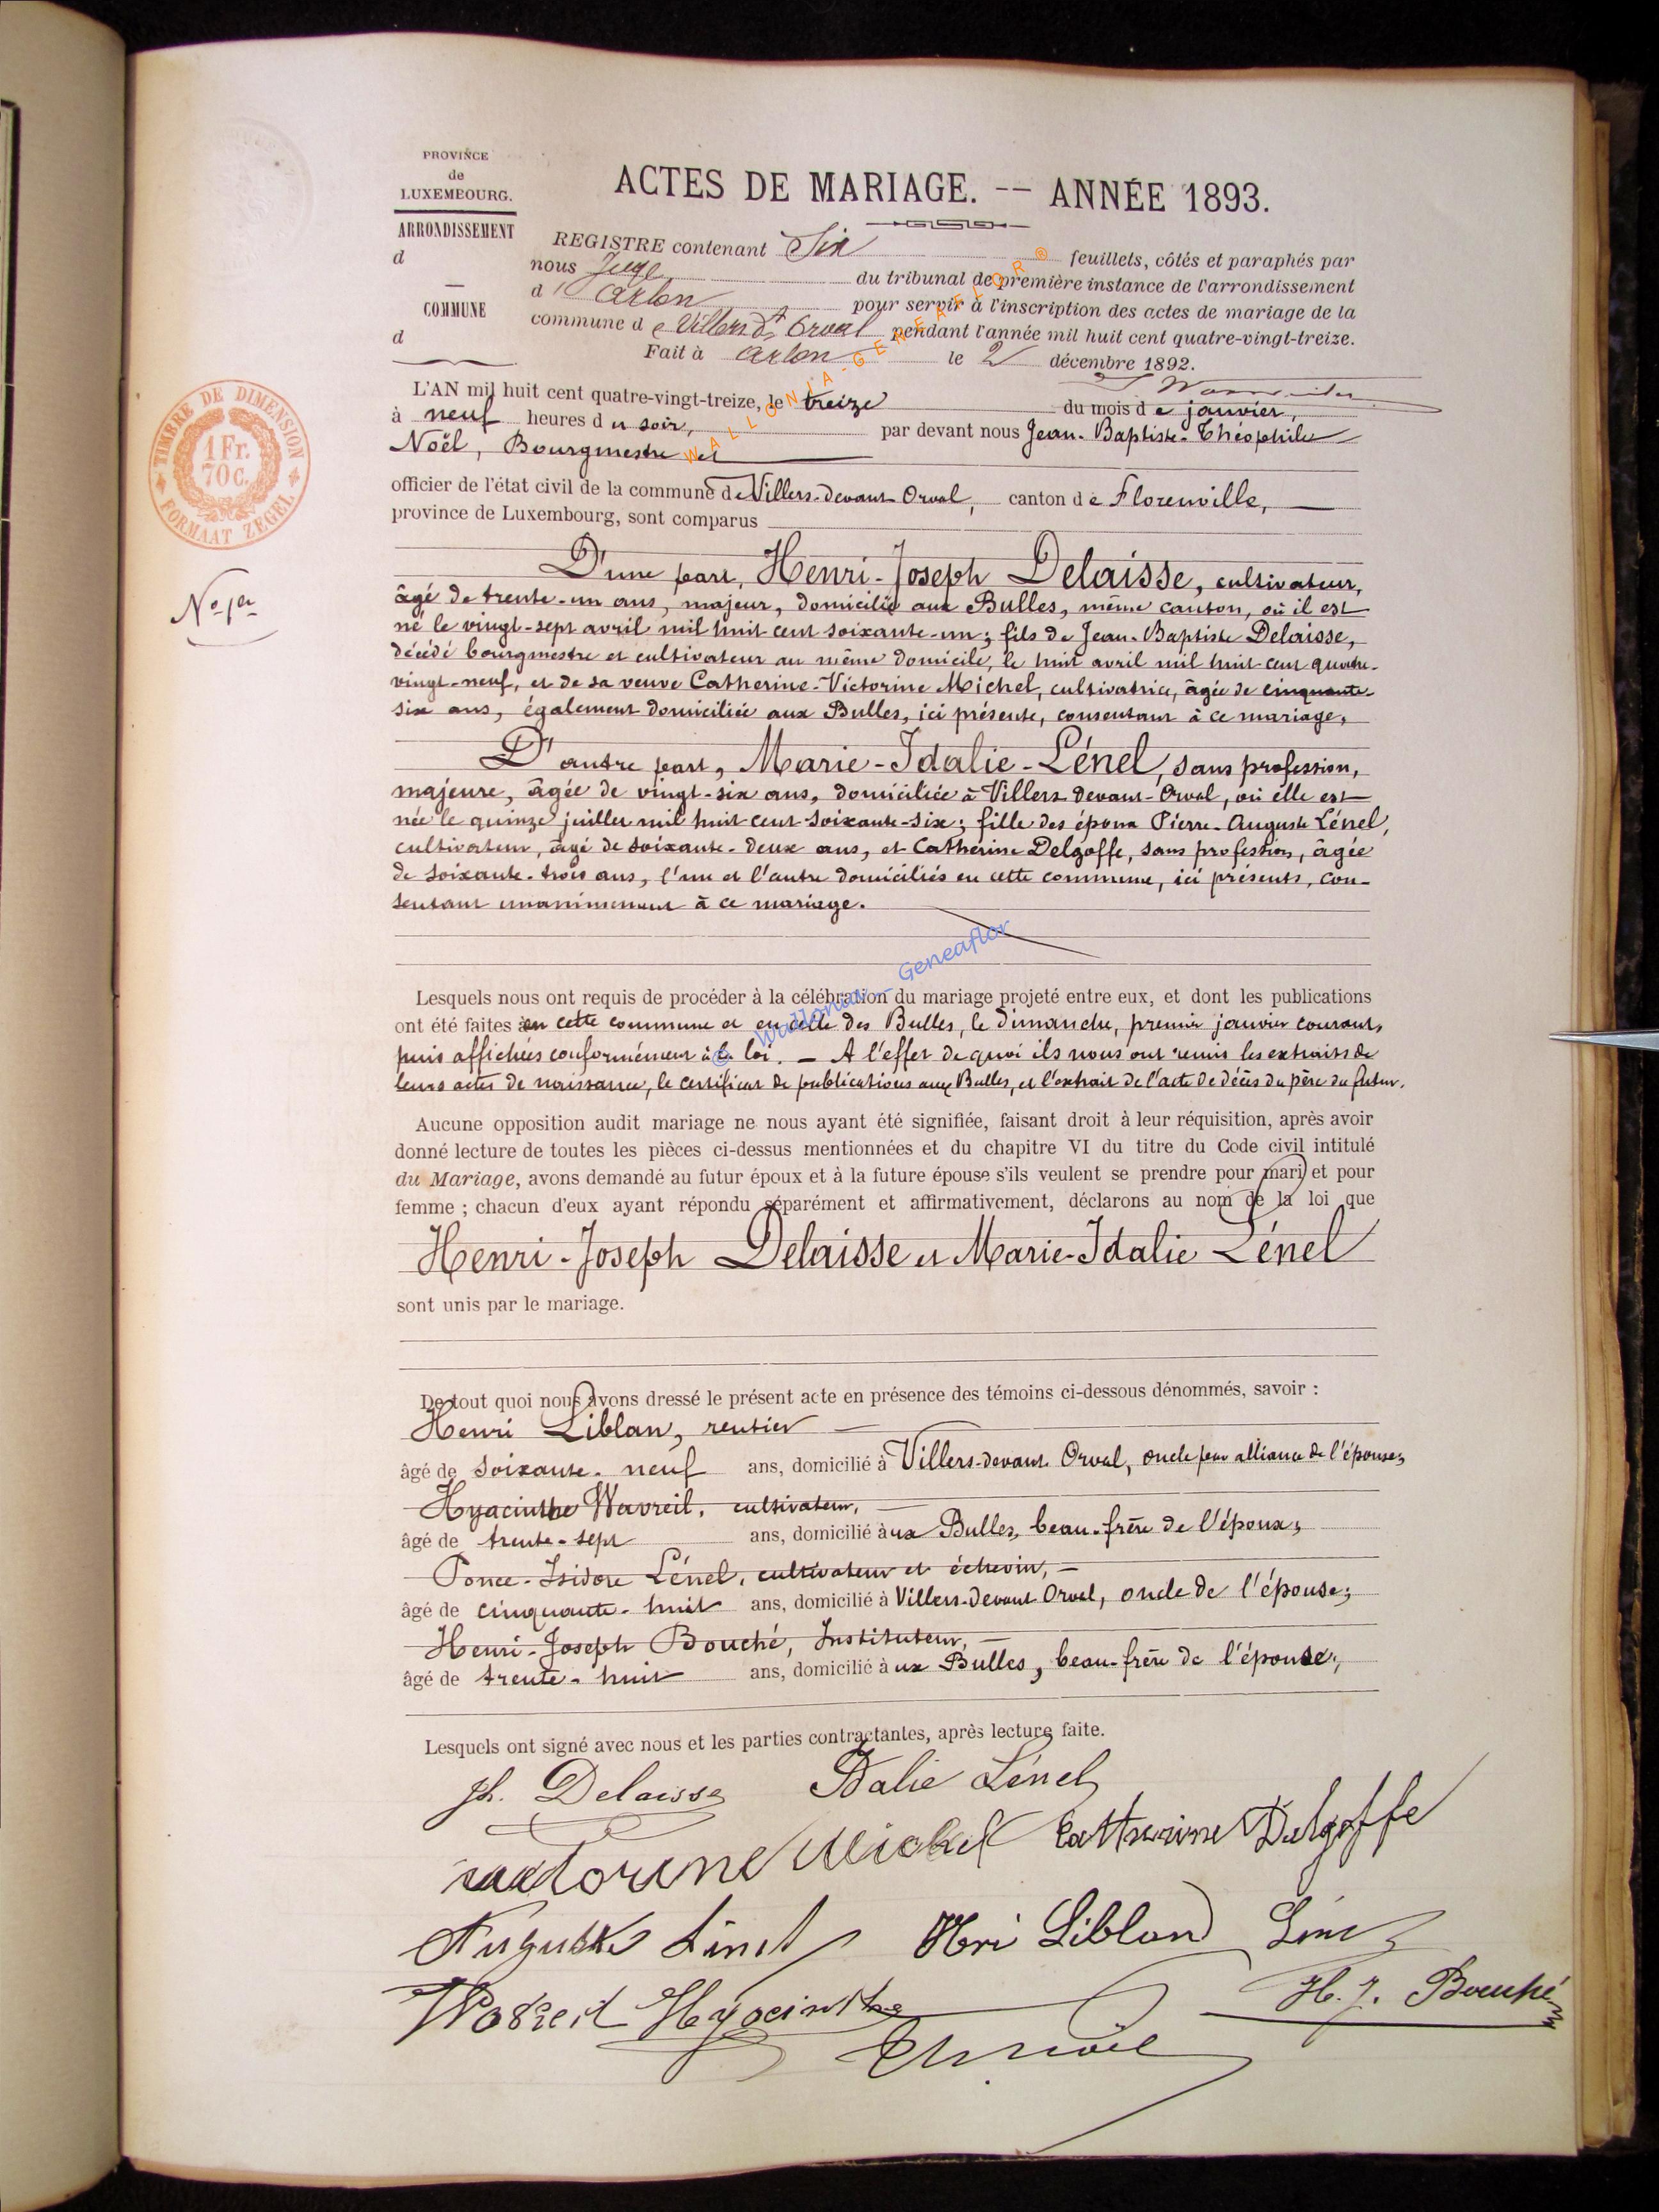 PROVINCE
de
LUXEMBOURG.
ARRONDISSEMENT
d
COMMUNE
d
ACTES DE MARIAGE. -- ANNÉE 1893.
REGISTRE contenant Six feuillets, côtés et paraphés par
nous Juge du tribunal de première instance de l'arrondissement
d'Arlon pour servir à l'inscription des actes de mariage de la
commune de Villers dt Orval pendant l'année mil huit cent quatre-vingt-treize.
Fait à Arlon le 2 décembre 1892.
WALLONIA-GENEAFLOR ®
TIMBRE DE DIMENSION
1 Fr.
70 C.
FORMAAT ZEGEL
No 1er
L'AN mil huit cent quatre-vingt-treize, le treize du mois de janvier,
à neuf heures du soir, par devant nous Jean-Baptiste-Théophile
Noël, Bourgmestre et
officier de l'état civil de la commune de Villers-devant-Orval, canton de Florenville,
province de Luxembourg, sont comparus
D'une part, Henri-Joseph Delaisse, cultivateur,
âgé de trente-un ans, majeur, domicilié aux Bulles, même canton, où il est
né le vingt-sept avril mil huit cent soixante-un; fils de Jean-Baptiste Delaisse,
décédé bourgmestre et cultivateur au même domicile, le huit avril mil huit cent quatre-
vingt-neuf, et de sa veuve Catherine-Victorine Michel, cultivatrice, âgée de cinquante-
six ans, également domiciliée aux Bulles, ici présente, consentant à ce mariage,
D'autre part, Marie-Idalie-Lénel, sans profession,
majeure, âgée de vingt-six ans, domiciliée à Villers devant-Orval, où elle est
née le quinze juillet mil huit cent soixante-six; fille des époux Pierre-Auguste Lénel,
cultivateur, âgé de soixante-deux ans, et Catherine Delgoffe, sans profession, âgée
de soixante-trois ans, l'un et l'autre domiciliés en cette commune, ici présents, con-
sentant unanimement à ce mariage.
© Wallonia _ Geneaflor
Lesquels nous ont requis de procéder à la célébration du mariage projeté entre eux, et dont les publications
ont été faites en cette commune et en celle des Bulles, le dimanche, premier janvier courant,
puis affichées conformément à la loi. — A l'effet de quoi ils nous ont remis les extraits de
leurs actes de naissance, le certificat de publications aux Bulles, et l'extrait de l'acte de décès du père du futur.
Aucune opposition audit mariage ne nous ayant été signifiée, faisant droit à leur réquisition, après avoir
donné lecture de toutes les pièces ci-dessus mentionnées et du chapitre VI du titre du Code civil intitulé
du Mariage, avons demandé au futur époux et à la future épouse s'ils veulent se prendre pour mari et pour
femme ; chacun d'eux ayant répondu séparément et affirmativement, déclarons au nom de la loi que
Henri-Joseph Delaisse et Marie-Idalie Lénel
sont unis par le mariage.
De tout quoi nous avons dressé le présent acte en présence des témoins ci-dessous dénommés, savoir :
Henri Liblan, rentier
âgé de soixante-neuf ans, domicilié à Villers-devant Orval, oncle par alliance de l'épouse;
Hyacinthe Wavreil, cultivateur,
âgé de trente-sept ans, domicilié aux Bulles, beau-frère de l'époux;
Ponce-Isidore Lénel, cultivateur et échevin,
âgé de cinquante-huit ans, domicilié à Villers-devant Orval, oncle de l'épouse;
Henri-Joseph Bouché, Instituteur,
âgé de trente-huit ans, domicilié aux Bulles, beau-frère de l'épouse;
Lesquels ont signé avec nous et les parties contractantes, après lecture faite.
Jh. Delaisse Idalie Lénel
Victorine Michel Catherine Delgoffe
Auguste Linel Hri Liblan Lénel
Wavreil Hyacinthe H. J. Bouché
Th Noël